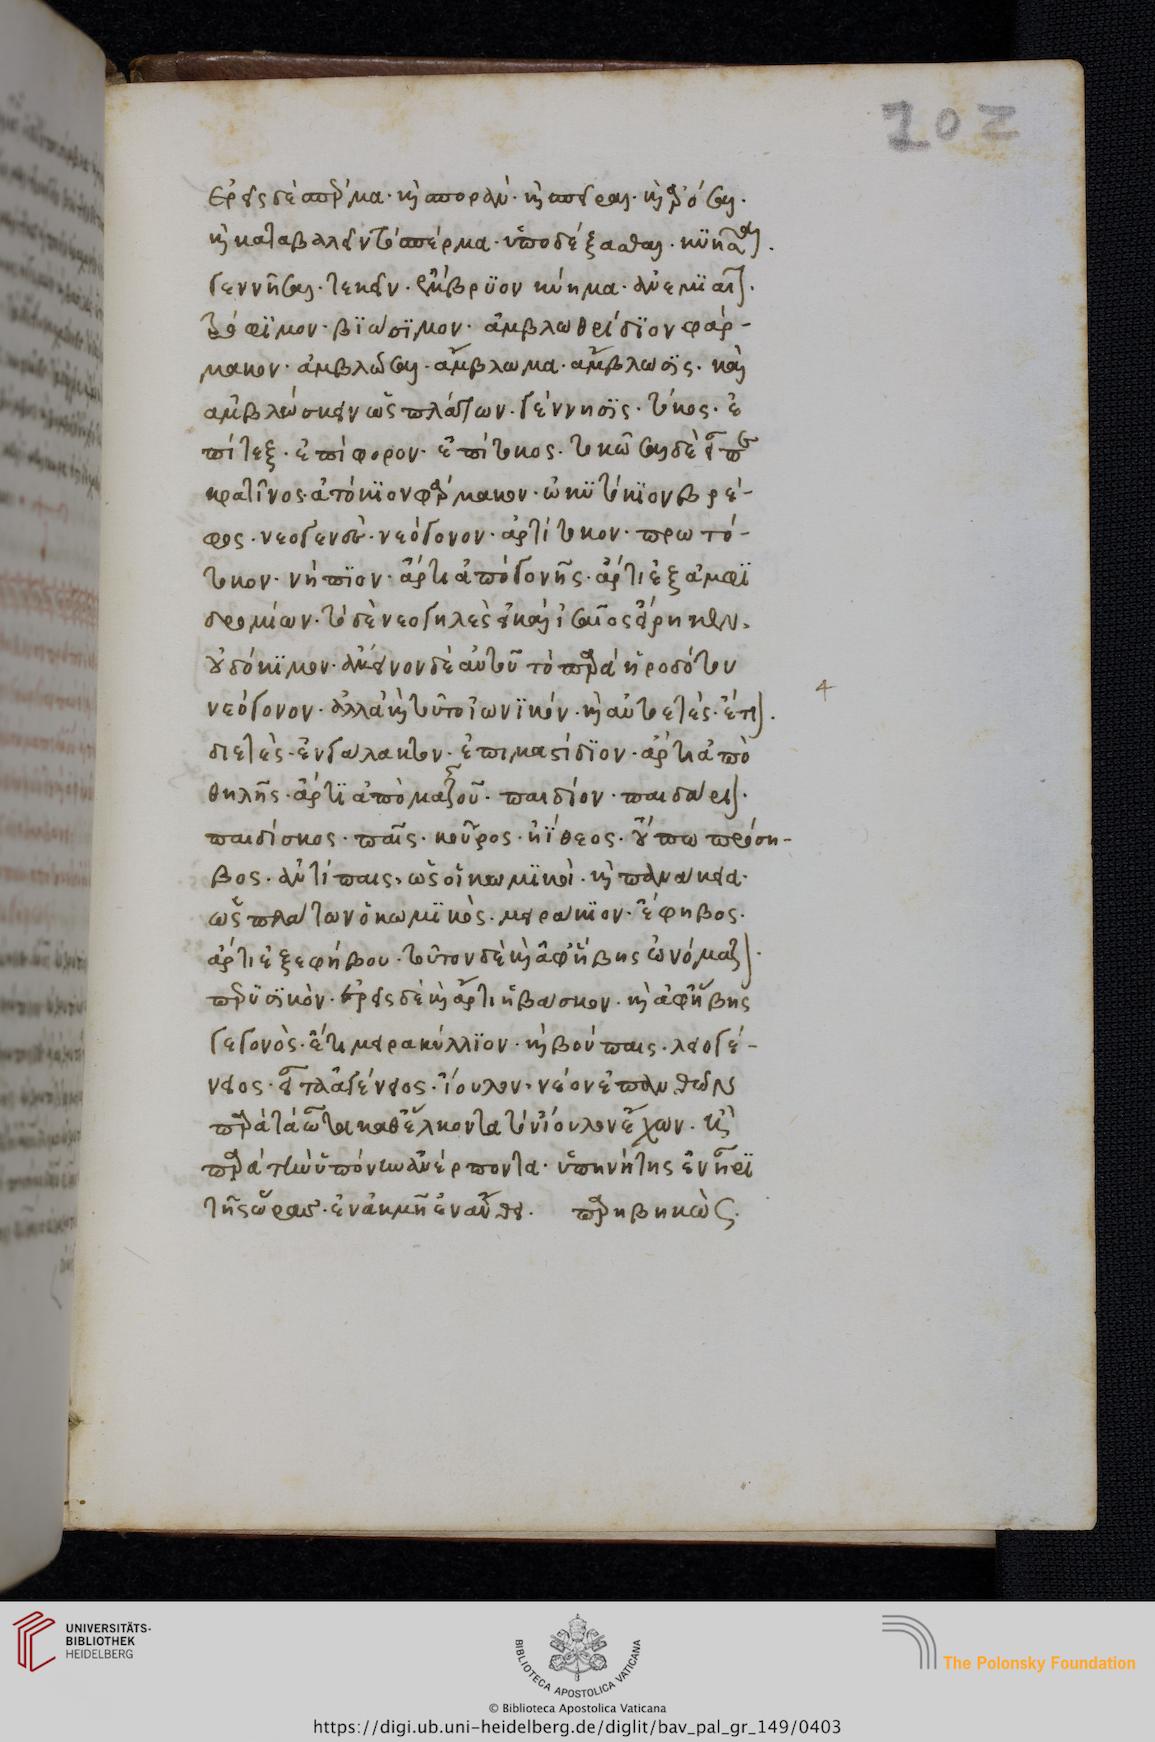 202
ἐρεῖς δὲ σπέρμα· καὶ σπορὰν· καὶ σπεῖραι· καὶ ἀρόσαι·
καὶ καταβαλεῖν τὸ σπέρμα· ὑποδέξασθαι· κυῆσαι·
γεννῆσαι· τεκεῖν· ἔμβρυον κύημα· ἀνεμιαῖον·
τρόφιμον· βιώσιμον· ἀμβλωθρίδιον φάρ-
μακον· ἀμβλῶσαι· ἄμβλωμα· ἄμβλωσις· καὶ
ἀμβλώσκειν ὡς πλάτων· γέννησις· τόκος· ἐ
πίτεξ· ἐπίφορον· ἐπίτοκος·
κρατῖνος· ἀτόκιον φάρμακον· ὠκυτόκιον βρέ-
φος· νεογενὲς· νεόγονον· ἀρτίτοκον· πρωτό-
τοκον· νήπιον· ἄρτι ἀπὸ γονῆς· ἄρτι ἐξ ἀμφι
δρομίων· τὸ δὲ νεογιλὲς εἰ καὶ ἰσαῖος εἴρηκεν,
οὐ δόκιμον· ἄμεινον δὲ αὐτοῦ τὸ παρὰ ἡροδότου
νεόγονον· ἀλλὰ καὶ τοῦτο ἰωνικόν· καὶ αὐτοετὲς· ἔτι
διετὲς· ἐν γάλακτον· ἐπιμαστίδιον· ἄρτι ἀπὸ
θηλῆς· ἄρτι ἀπὸ μαζοῦ· παιδίον· παιδάριον·
παιδίσκος· παῖς· κοῦρος· ἠίθεος· οὔπω πρόση-
βος· ἀντίπαις, ὡς οἱ κωμικοὶ· καὶ παλλάκια·
ὡς πλάτων ὁ κωμικὸς· μειράκιον· ἔφηβος·
ἄρτι ἐξ ἐφήβου· τοῦτον δὲ καὶ ἀφ' ἥβης ὠνόμαζον·
περυσινὸν· ἐρεῖς δὲ καὶ ἄρτι ἡβάσκον· καὶ ἀφ' ἥβης
γεγονὸς· ἔτι μειρακύλλιον· καὶ βούπαις· λειογέ-
νειος· εὐπλαγένειος· ἴουλον, νέον ἐπανθῶν
παρὰ τὰ ὦτα καθέλκοντα τὸν ἴουλον ἔχων· καὶ
παρὰ τὴν ὑπήνην ἀνέρποντα· ὑπηνήτης ἐν ἦρι
τῆς ὥρας· ἐν ἀκμῇ ἐν ἄνθει· παρηβηκὼς·
4
UNIVERSITÄTS-
BIBLIOTHEK
HEIDELBERG
BIBLIOTECA APOSTOLICA VATICANA
© Biblioteca Apostolica Vaticana
The Polonsky Foundation
https://digi.ub.uni-heidelberg.de/diglit/bav_pal_gr_149/0403